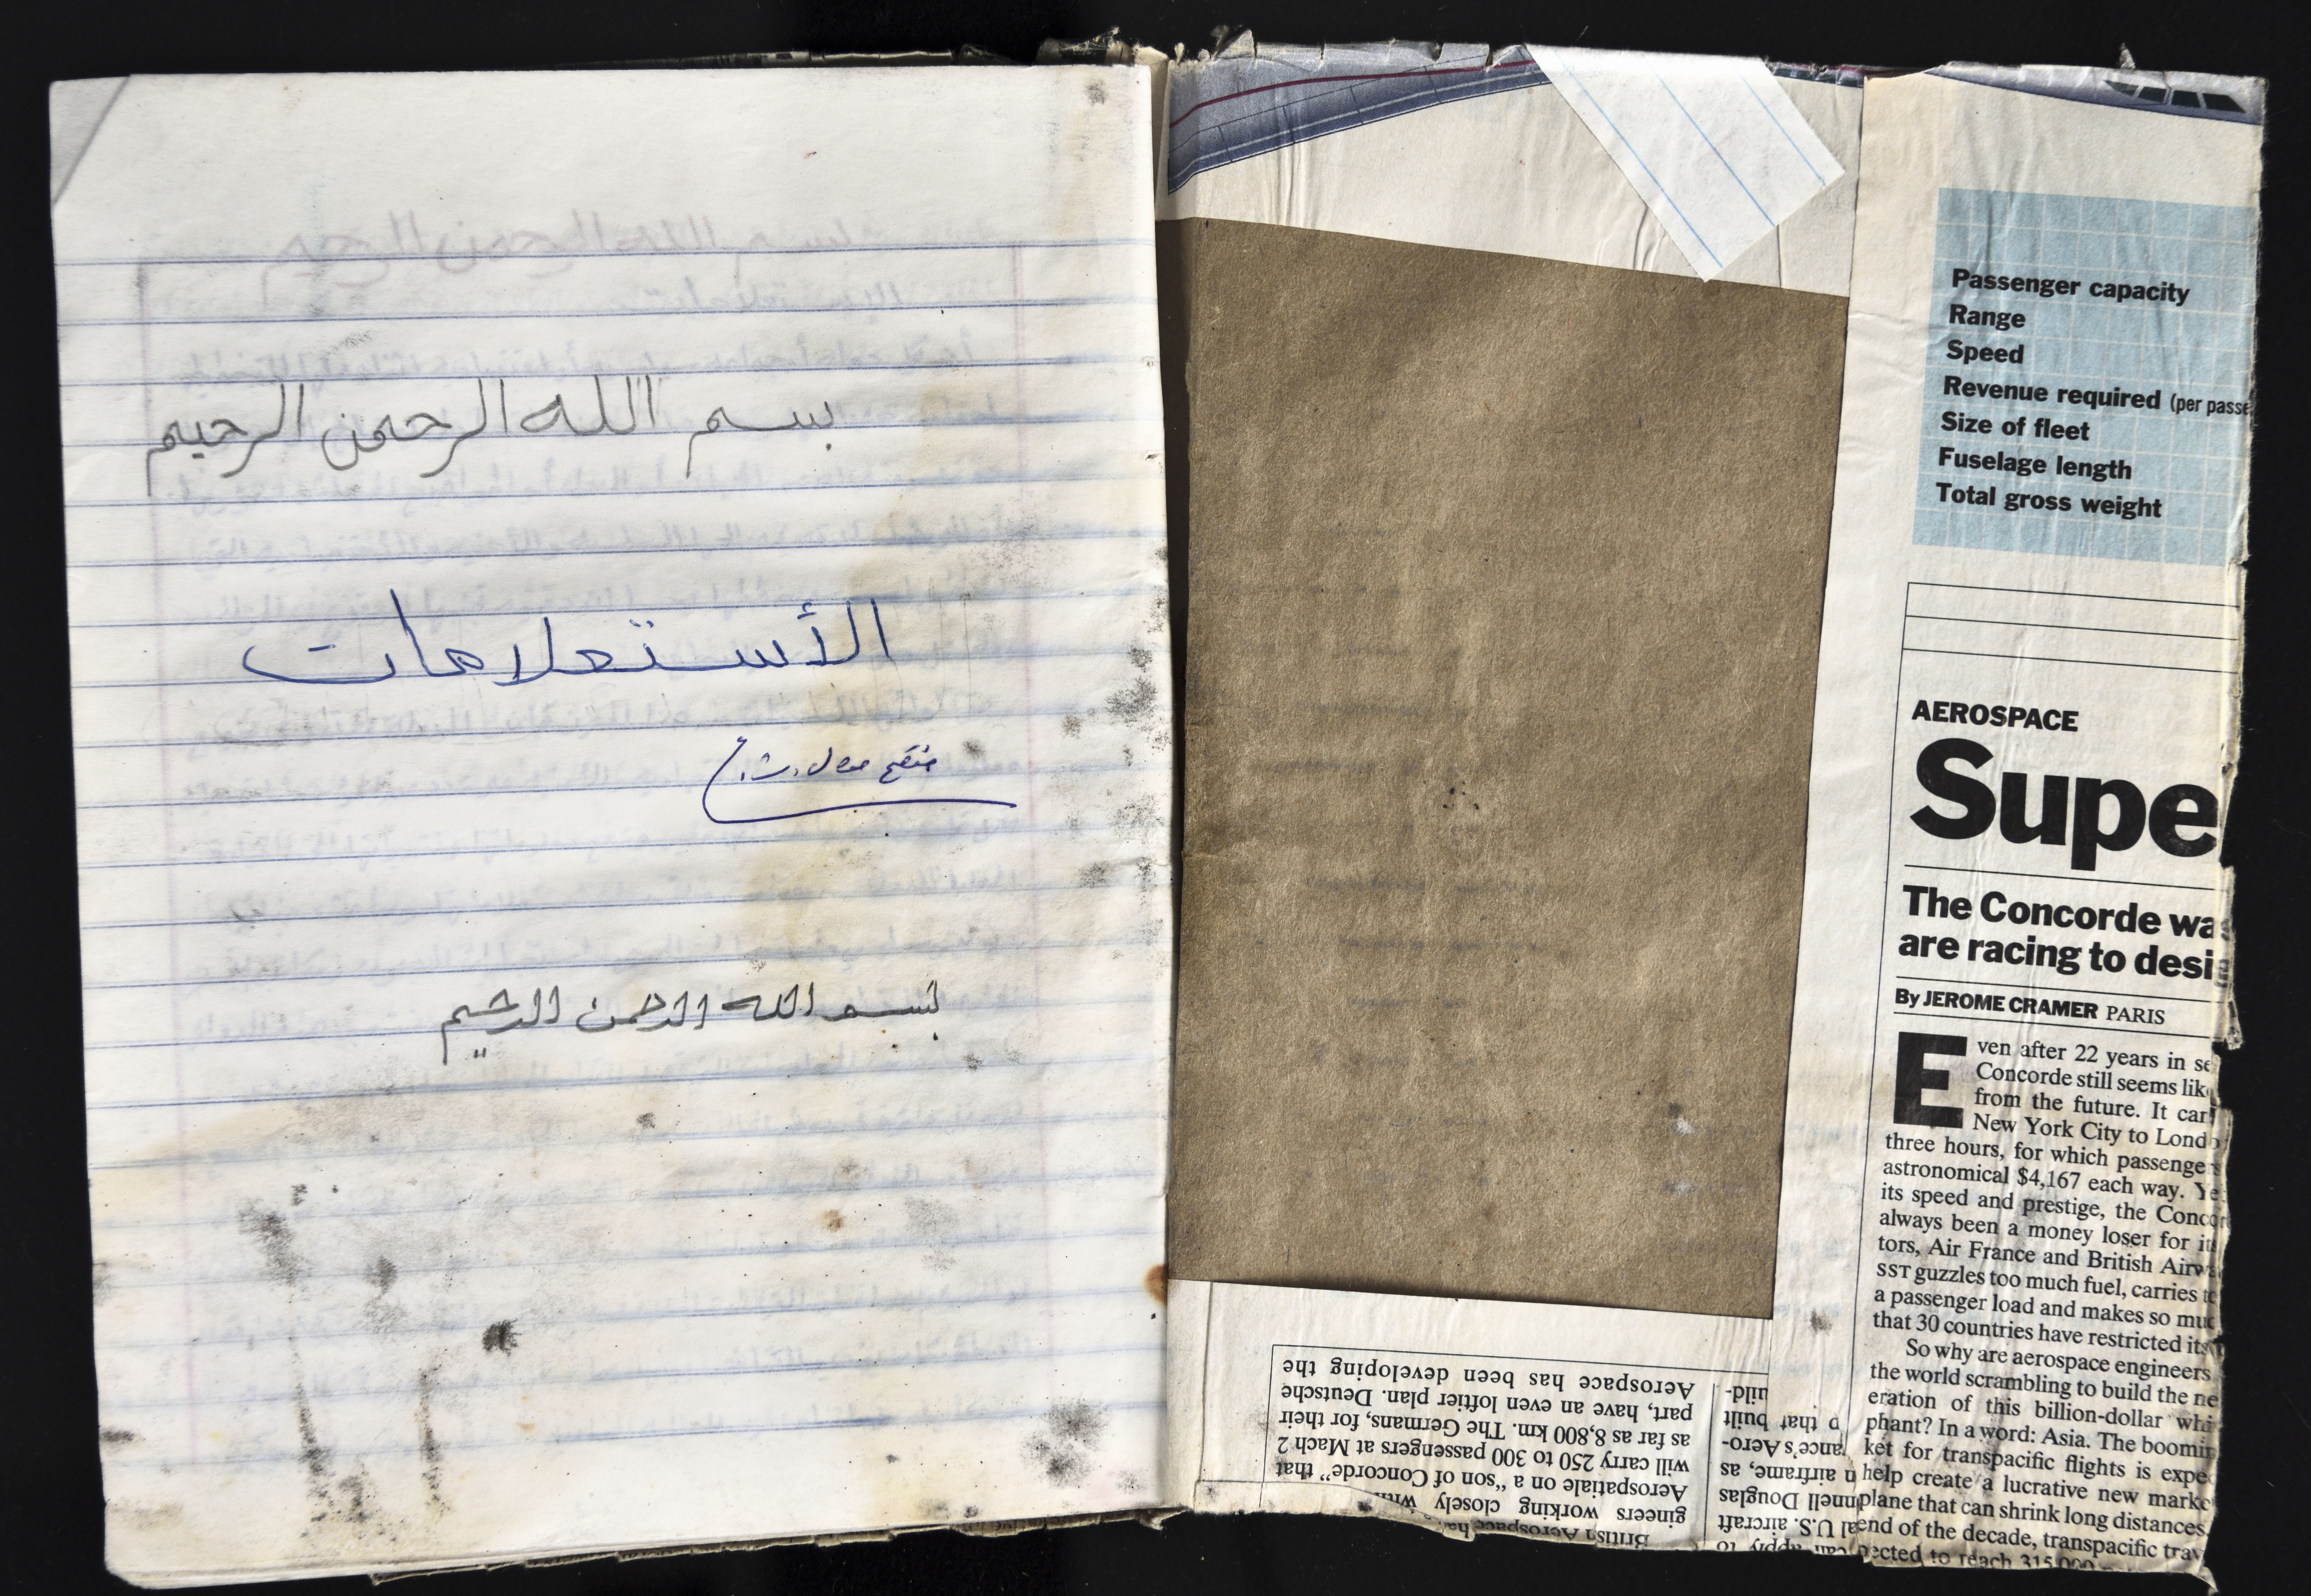 بسم الله الرحمن الرحيم
الأستعلامات
بسم الله الرحمن الرحيم
Passenger capacity
Range
Speed
Revenue required (per passe
Size of fleet
Fuselage length
Total gross weight
AEROSPACE
Supe
The Concorde wa
are racing to desi
By JEROME CRAMER PARIS
Even after 22 years in se
Concorde still seems lik
from the future. It car
New York City to Londo
three hours, for which passenge
astronomical $4,167 each way. Ye
its speed and prestige, the Conco
always been a money loser for it
tors, Air France and British Airw
SST guzzles too much fuel, carries to
a passenger load and makes so muc
that 30 countries have restricted its
So why are aerospace engineers
the world scrambling to build the ne
eration of this billion-dollar whi
phant? In a word: Asia. The boomin
ket for transpacific flights is expe
help create a lucrative new marke
plane that can shrink long distances.
end of the decade, transpacific trav
ected to reach 315,000
British Aerospace ha
gineers working closely with
Aerospatiale on a "son of Concorde" that
will carry 250 to 300 passengers at Mach 2
as far as 8,800 km. The Germans, for their
part, have an even loftier plan. Deutsche
Aerospace has been developing the
apply to
U.S. aircraft
nnell Douglas
airframe, as
ance's Aero-
p that built
uild-